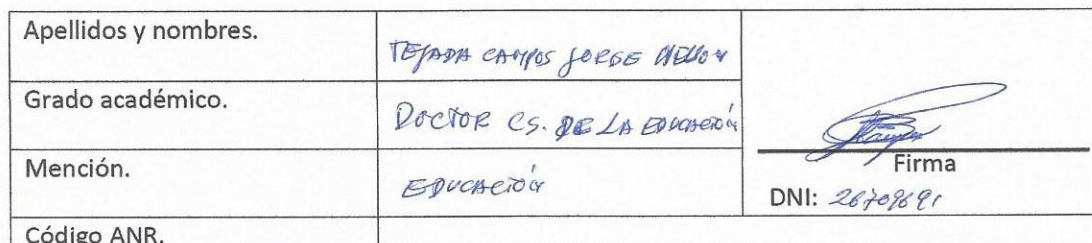 Apellidos y nombres.
TEJADA CAMPOS JORGE NELSON
Grado académico.
DOCTOR CS. DE LA EDUCACIÓN
Mención.
EDUCACIÓN
Firma
DNI: 26709691
Código ANR.